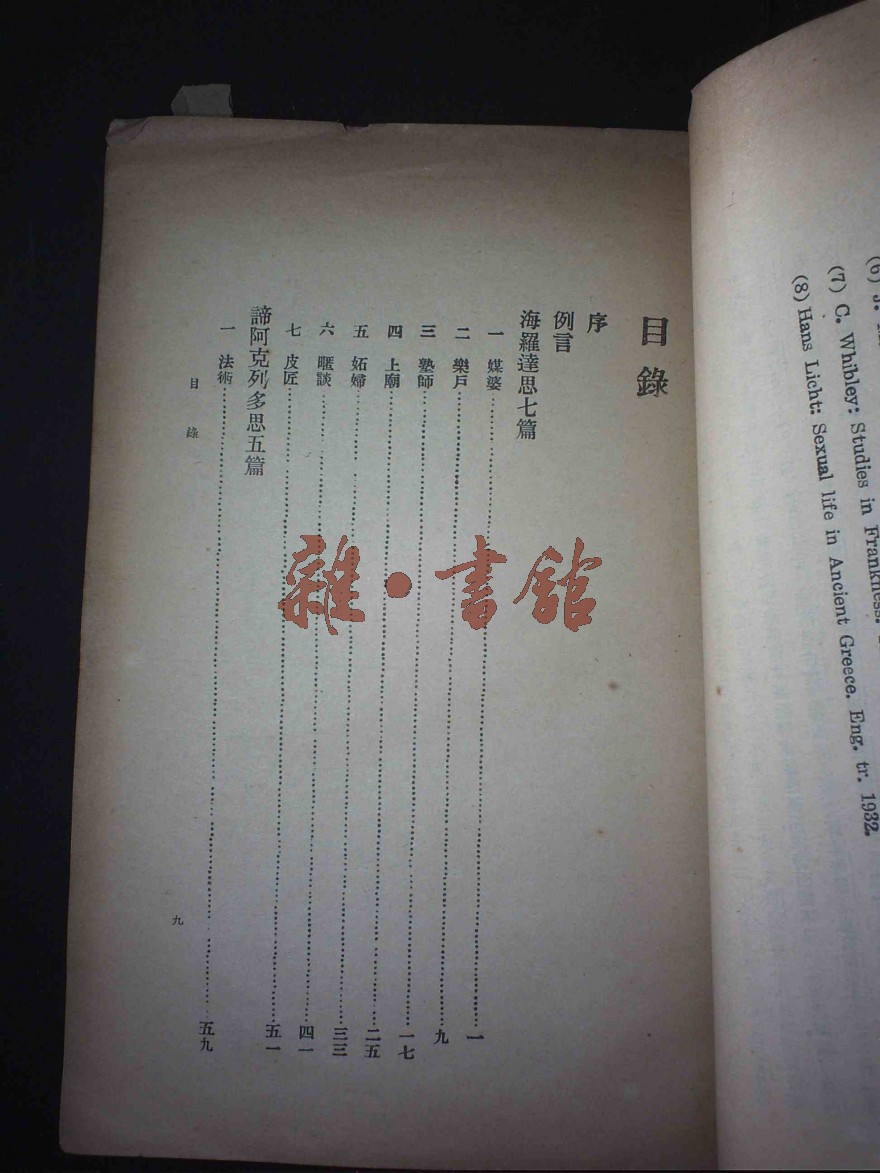 目錄
序
例言
海羅達思七篇
一 媒婆……一
二 樂戶……九
三 塾師……一七
四 上廟……二五
五 妬婦……三三
六 暱談……四一
七 皮匠……五一
諦阿克列多思五篇
一 法術……五九
目錄
九
雜·書館
(6) J.
(7) C. Whibley: Studies in Frankness.
(8) Hans Licht: Sexual life in Ancient Greece. Eng. tr. 1932.